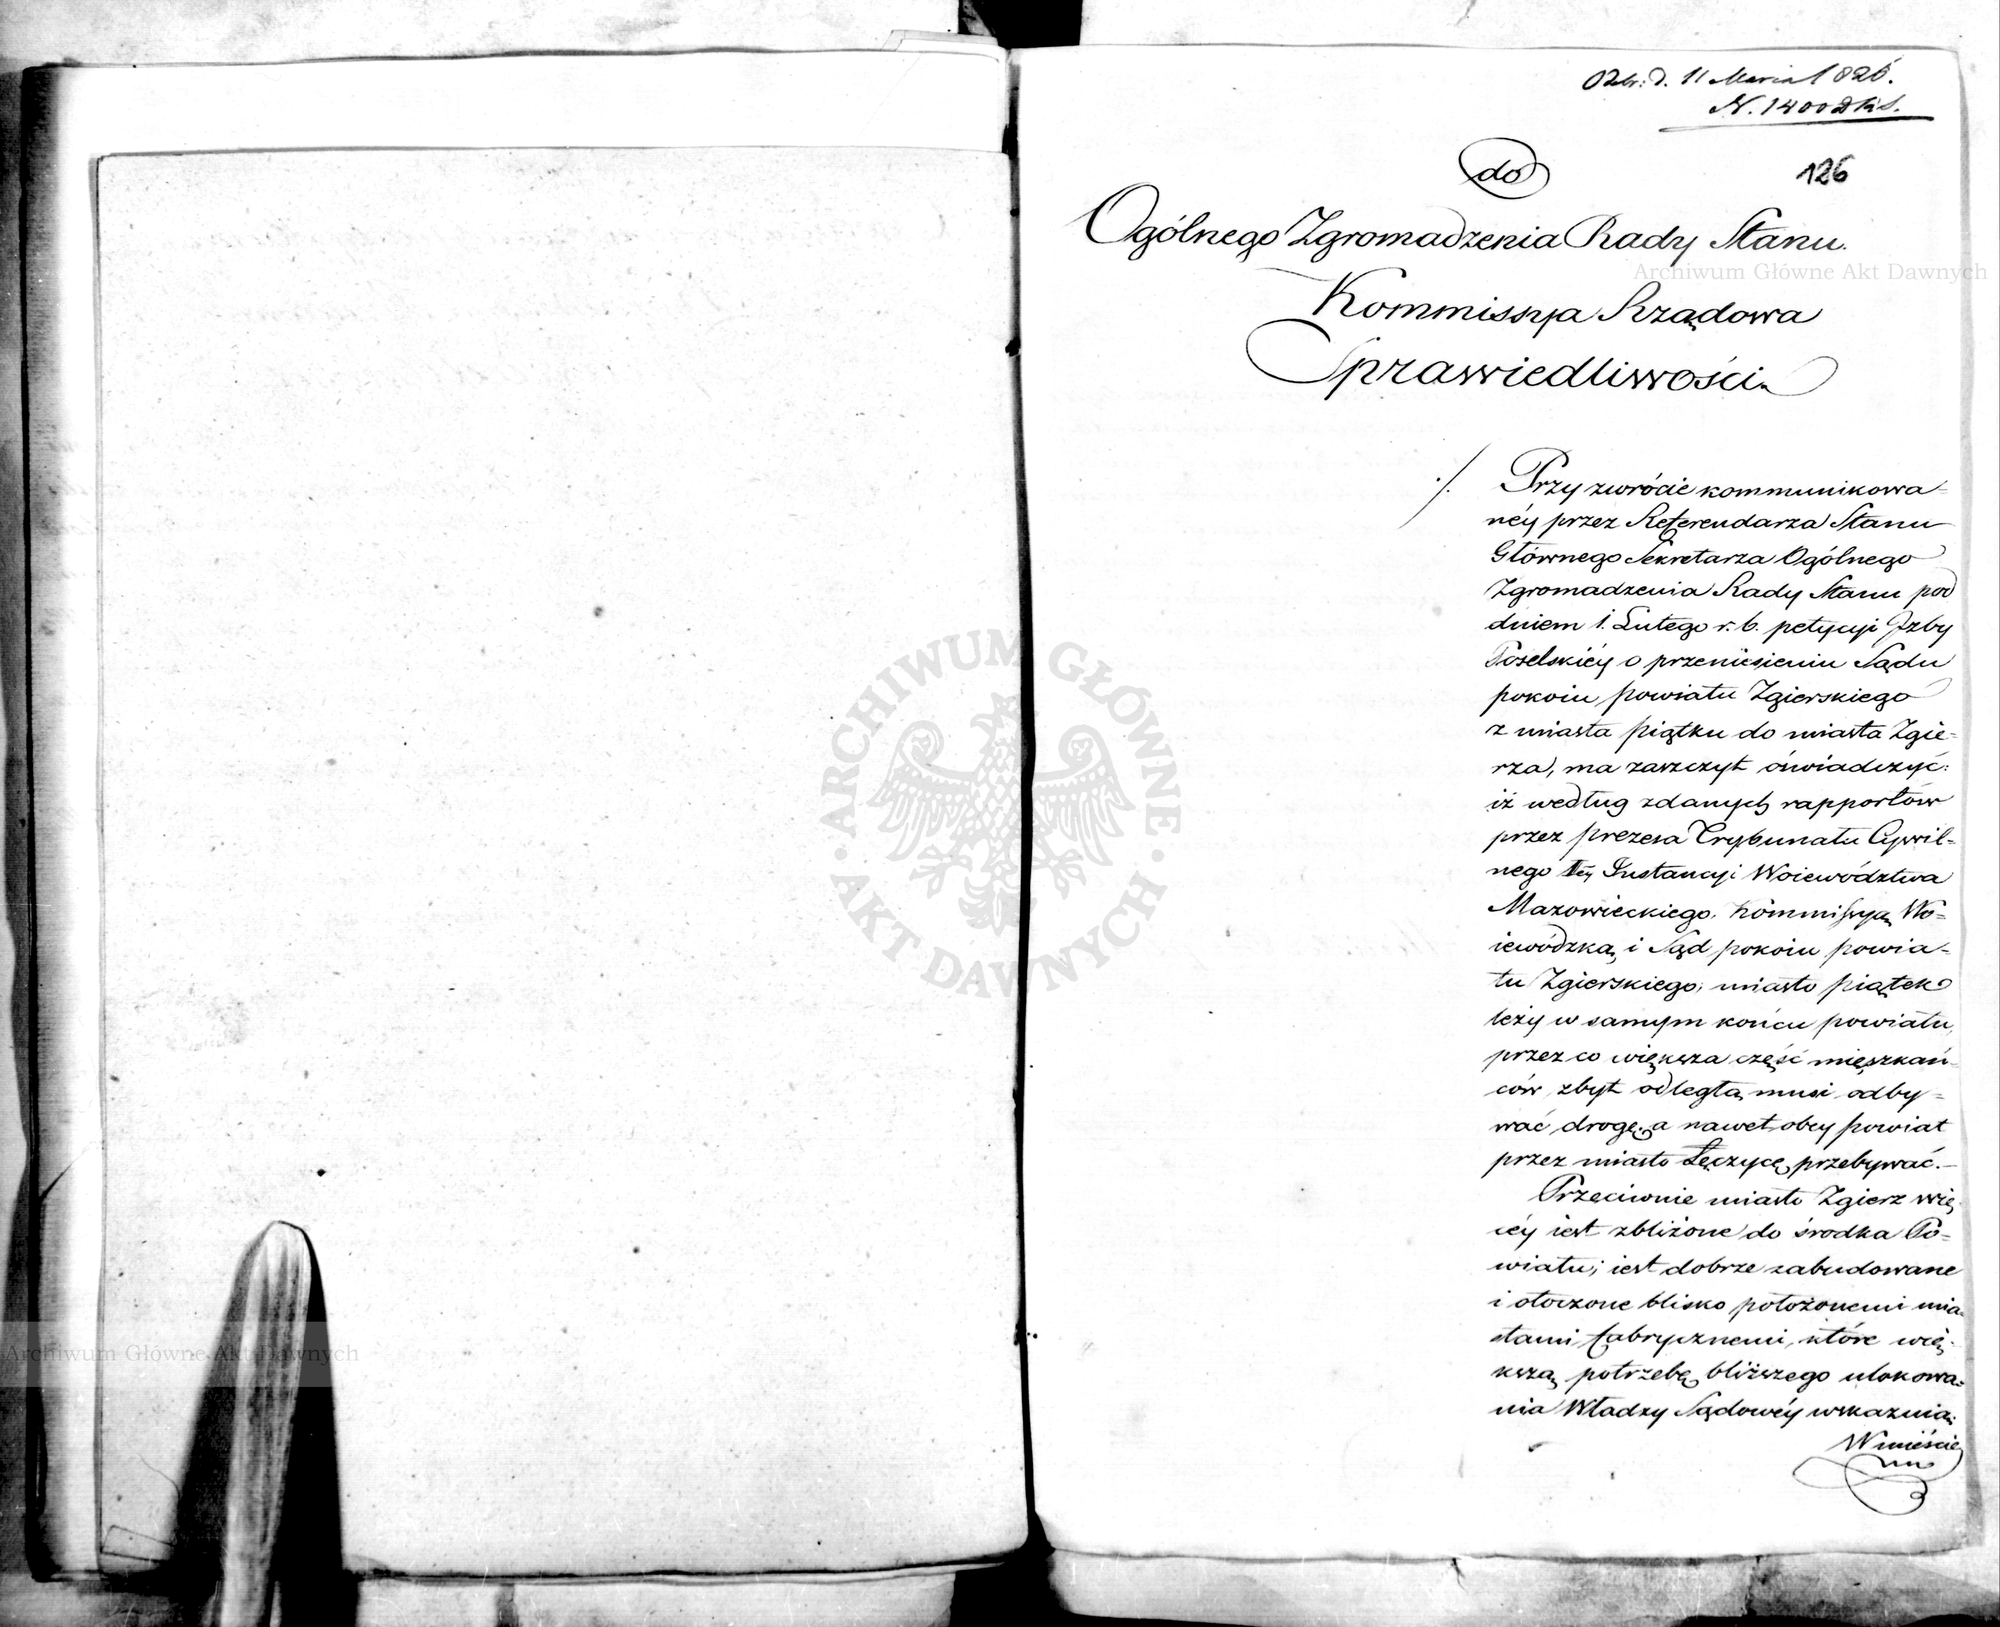 Odebr: d. 11 Marca 1826.
N. 1400 
126
do
Ogólnego Zgromadzenia Rady Stanu.
Kommissya Rządowa
Sprawiedliwości.
./. Przy zwrócie kommunikowa=
néy przez Referendarza Stanu
Głównego Sekretarza Ogólnego
Zgromadzenia Rady Stanu pod
dniem 1. Lutego r. b. petycyi Izby
Poselskiéy o przeniesieniu Sądu
pokoiu powiatu Zgierskiego
z miasta Piątku do miasta Zgie=
rza, ma zaszczyt oświadczyć:
iż według zdanych rapportów
przez Prezesa Trybunału Cywil=
nego Iéy Instancyi Woiewództwa
Mazowieckiego, Kommissyą Wo=
iewódzką, i Sąd pokoiu powia=
tu Zgierskiego, miasto Piątek
leży w samym końcu powiatu,
przez co większa część mieszkań=
ców zbyt odległą musi odby=
wać drogę, a nawet obcy powiat
przez miasto Łęczycę przebywać.—
Przeciwnie miasto Zgierz wię=
céy iest zbliżone do środka Po=
wiatu; iest dobrze zabudowane
i otoczone blisko położonemi mia=
stami fabrycznemi, które wię=
kszą potrzebę bliższego ulokowa=
nia Władzy Sądowéy wskazuią.
W mieście
Archiwum Główne Akt Dawnych
Archiwum Główne Akt Dawnych
ARCHIWUM GŁÓWNE · AKT DAWNYCH ·